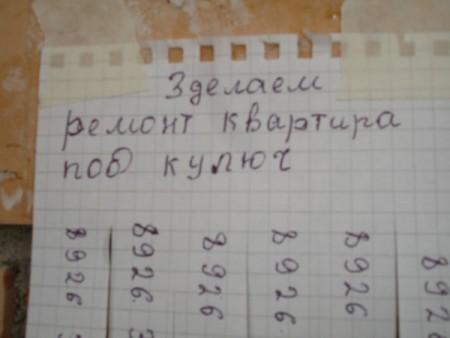 Зделаем
ремонт квартира
поб кулюч
8926
8926
8926
8926
8926
892